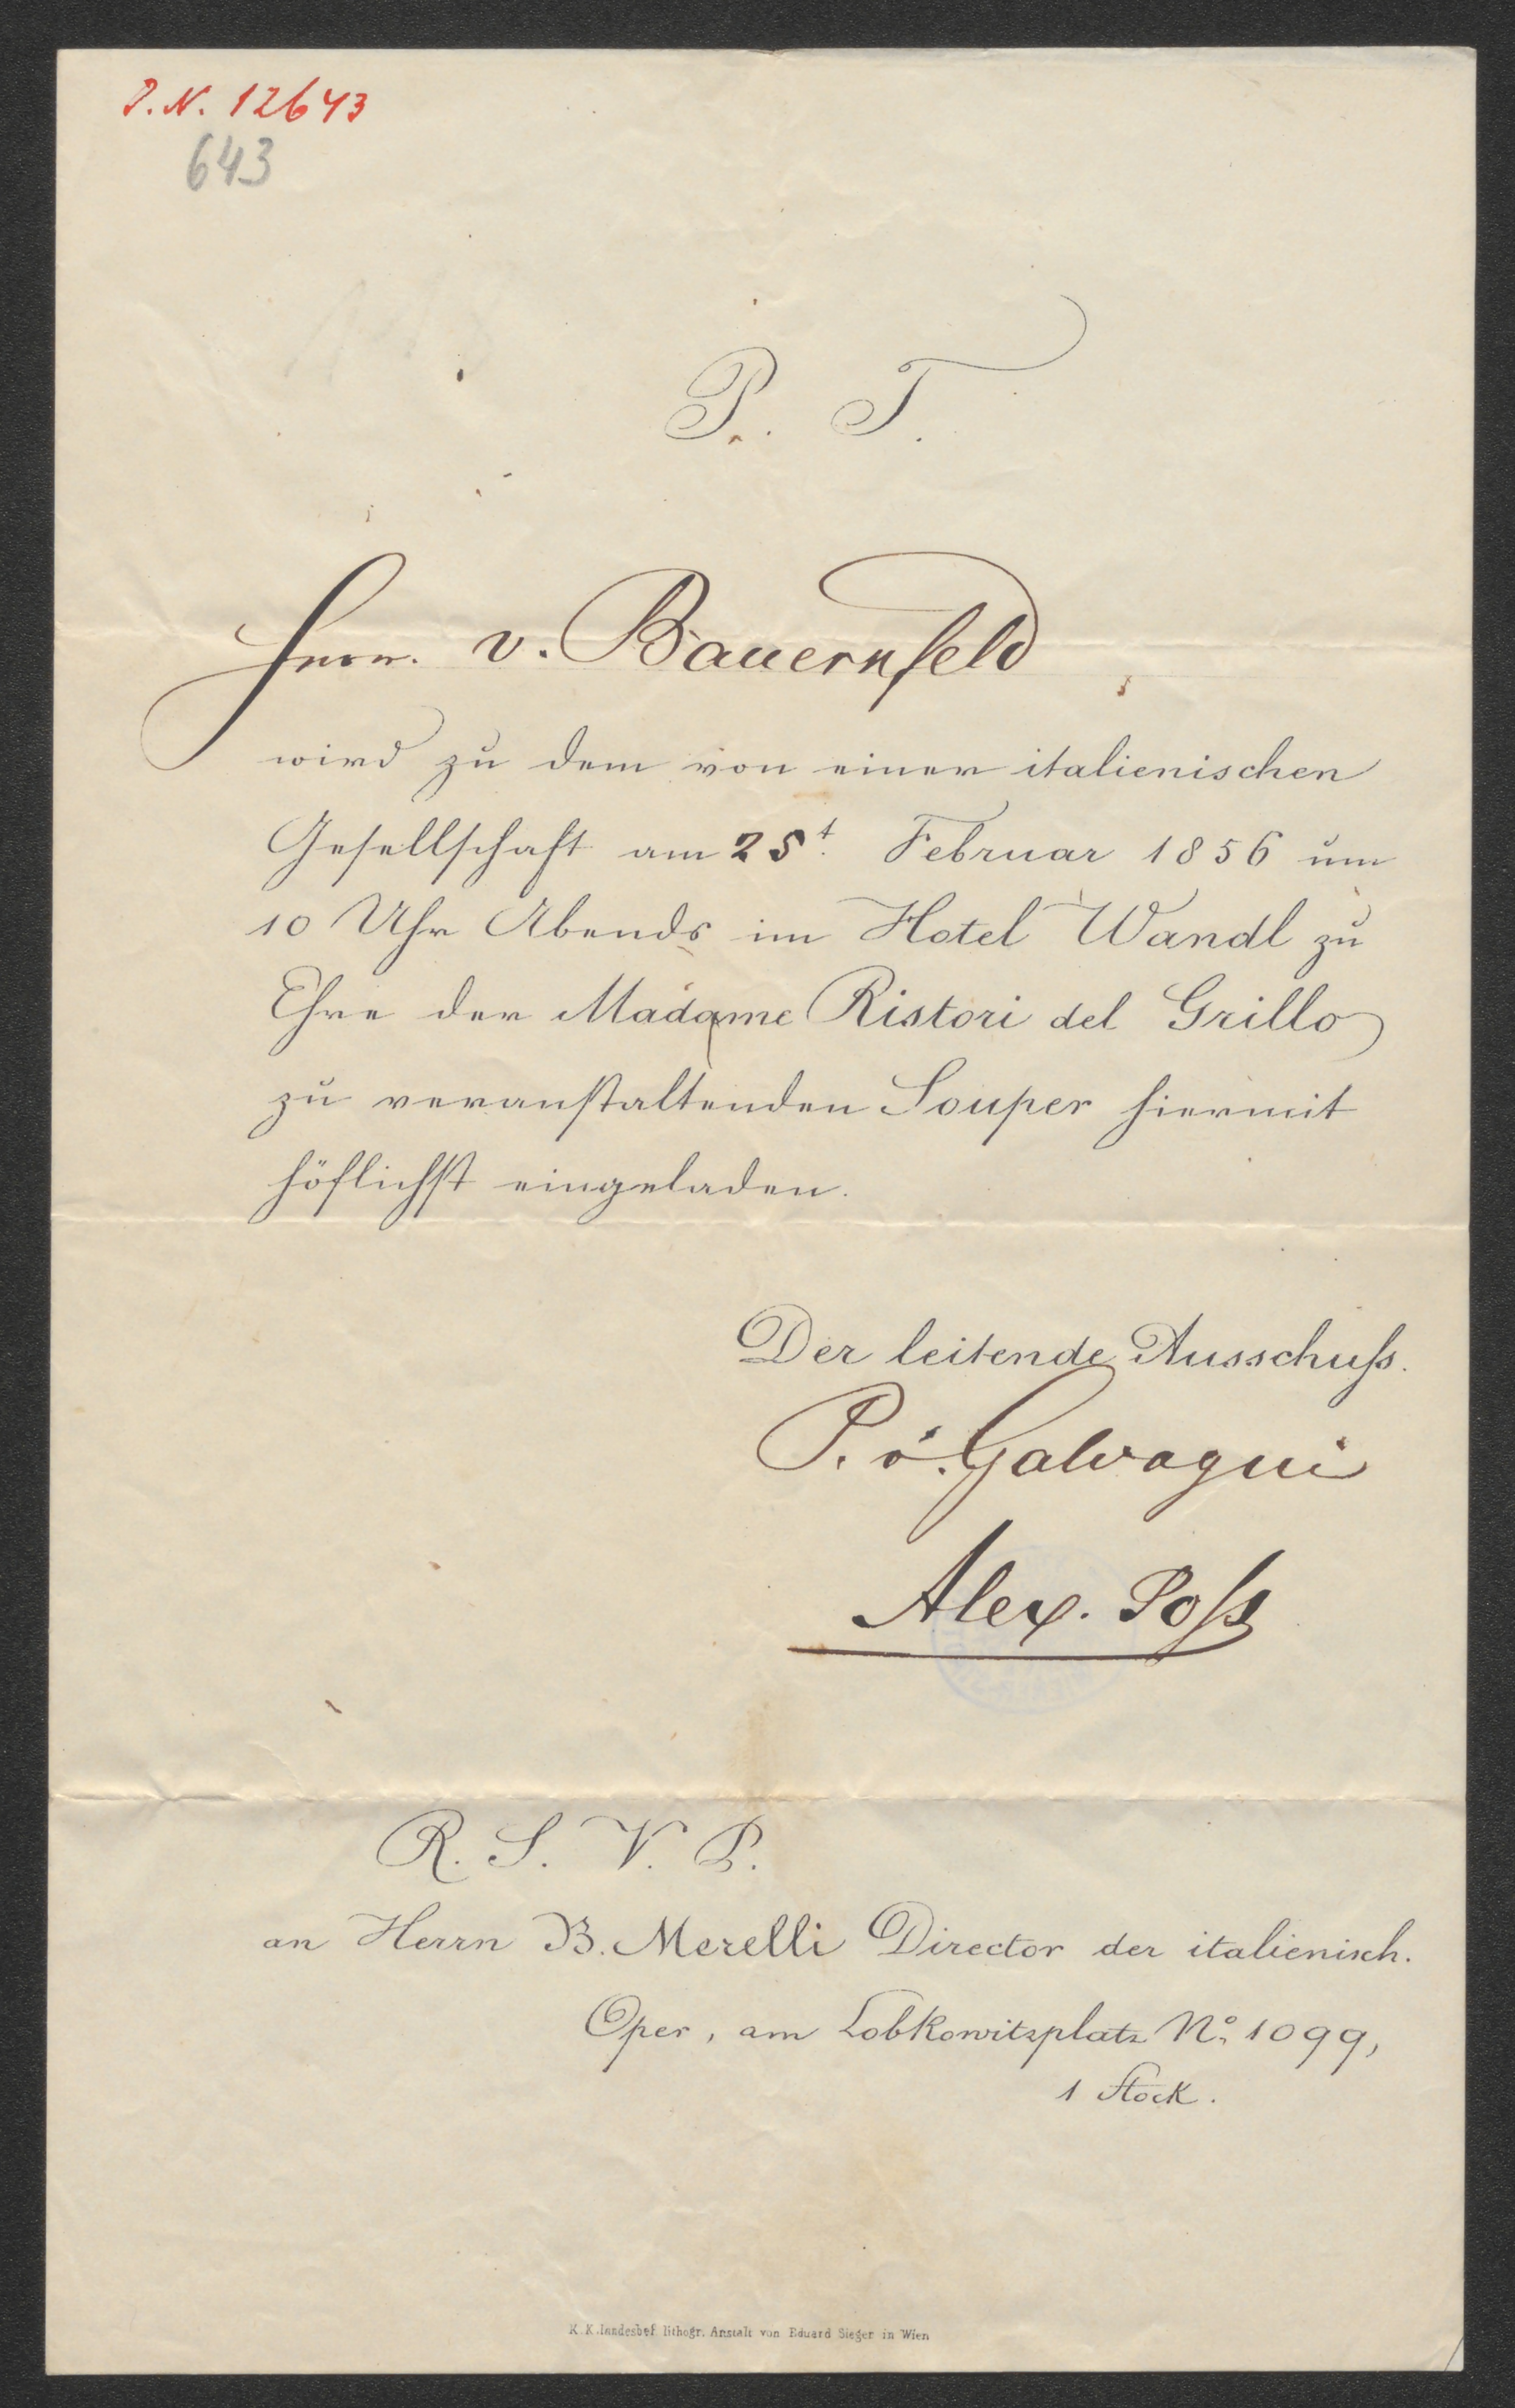 I. N. 12643
643
P. T.
Herrn. v. Bauernfeld
wird zu dem von einer italienischen
Gesellschaft am 25t. Februar 1856 um
10 Uhr Abends im Hotel Wandl zu
Ehre der Madame Ristori del Grillo
zu veranstaltenden Souper hiermit
höflichst eingeladen.
Der leitende Ausschuſs.
P. v. Galvagni
Alex.
R. S. V. P.
an Herrn B. Merelli Director der italienisch.
Oper, am Lobkowitzplatz No. 1099,
1 Stock.
K. K. landesbef. lithogr. Anstalt von Eduard Sieger in Wien